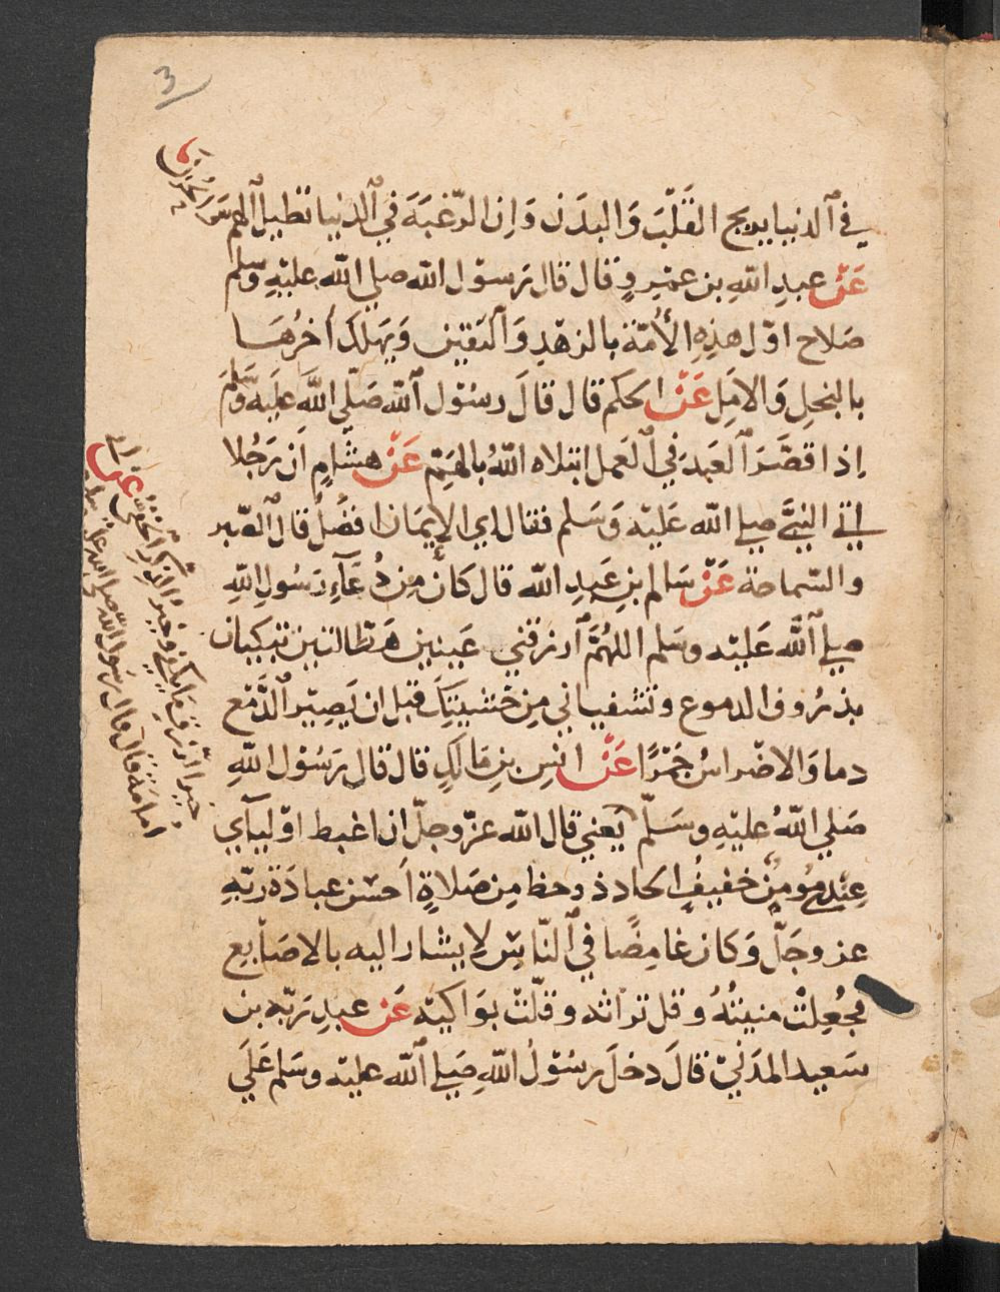 3
في ٱلدنيا يريح القَلْبَ وَالبدَن وَاِن الرّغبَةَ في ٱلدنيا تطيل ٱلهم
وَالحُزنَ
عَنْ عبدِ اللهِ بن عمْرٍو قال قال رَسوْل الله صلي الله عليْهِ وسلم
صَلاح اوّل هذِهِ الأُمّة بالزهْدِ وَاليَقين وَيَهلك آخرُهَا
بالبخلِ وَالامَلِ عَنْ الحكم قال قالَ رسُوْل ٱللّه صَلّى اللّهَ عليَه وَسَلّمَ
إذا قصَّرَ ٱلعَبدُ في ٱلعَمل ابتلاه اللّهُ بالهَمّ عَنْ هشَامٍ ان رَجُلا
اتي النبيَّ صلي اللّه عَليْه وَسَلم فقال اي الإِيمَان افضُلُ قال ٱلصّبر
والسّماحة عَنْ سَالم ابنِ عَبدِ اللّه قال كَانَ مِن دُعَآءِ رَسُولِ اللّهِ
صلي ٱللَّه عَليْه وسَلم اللهُمَّ ٱرزقني عَينين هَطّالتين تبكيان
بذرُوف الدموع وتشفياني مِن خَشيتِكَ قبل ان يَصِيْر ٱلدَّمع
دما وَالاضْراسُ جَمْرًا عَنْ انسِ بنِ مَالكٍ قال قال رَسُوْل اللّهِ
صَلي اللّهُ عليْهِ وسَلّم يَعني قال اللّه عزّ وجلّ ان اغبط اوْليآي
عِنْدي مُومِنٌ خفيفُ الحاذ ذو حظ مِن صَلاةٍ اَحسَن عبادَة ربّهِ
عز وجَلّ وَكان غامِضًا في ٱلنّاسِ لا يشار اليه بالاصَابع
فجُعِلتْ منيتُهُ وقل تراثه وقلّتْ بوَاكيْه عَن عبدِ رَبّه بن
سَعيد المدَنيّ قالَ دخلَ رسُوْلُ اللّهِ صَلي ٱللّه عليْه وسَلم عَلَي
عن
امامَة قال قال رسَول اللّه صلي اللّه عليه
خيرُ الرّزقِ مَا يَكفي وخيرُ الذِكر الخفيّ